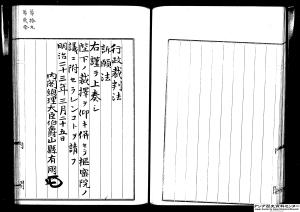 行政裁判法
訴願法
右謹テ上奏シ
陛下ノ裁擇ヲ仰キ併セテ樞密院ノ
議ニ附セラレンコトヲ請フ
明治二十三年三月二十五日
內閣總理大臣伯爵山縣有朋